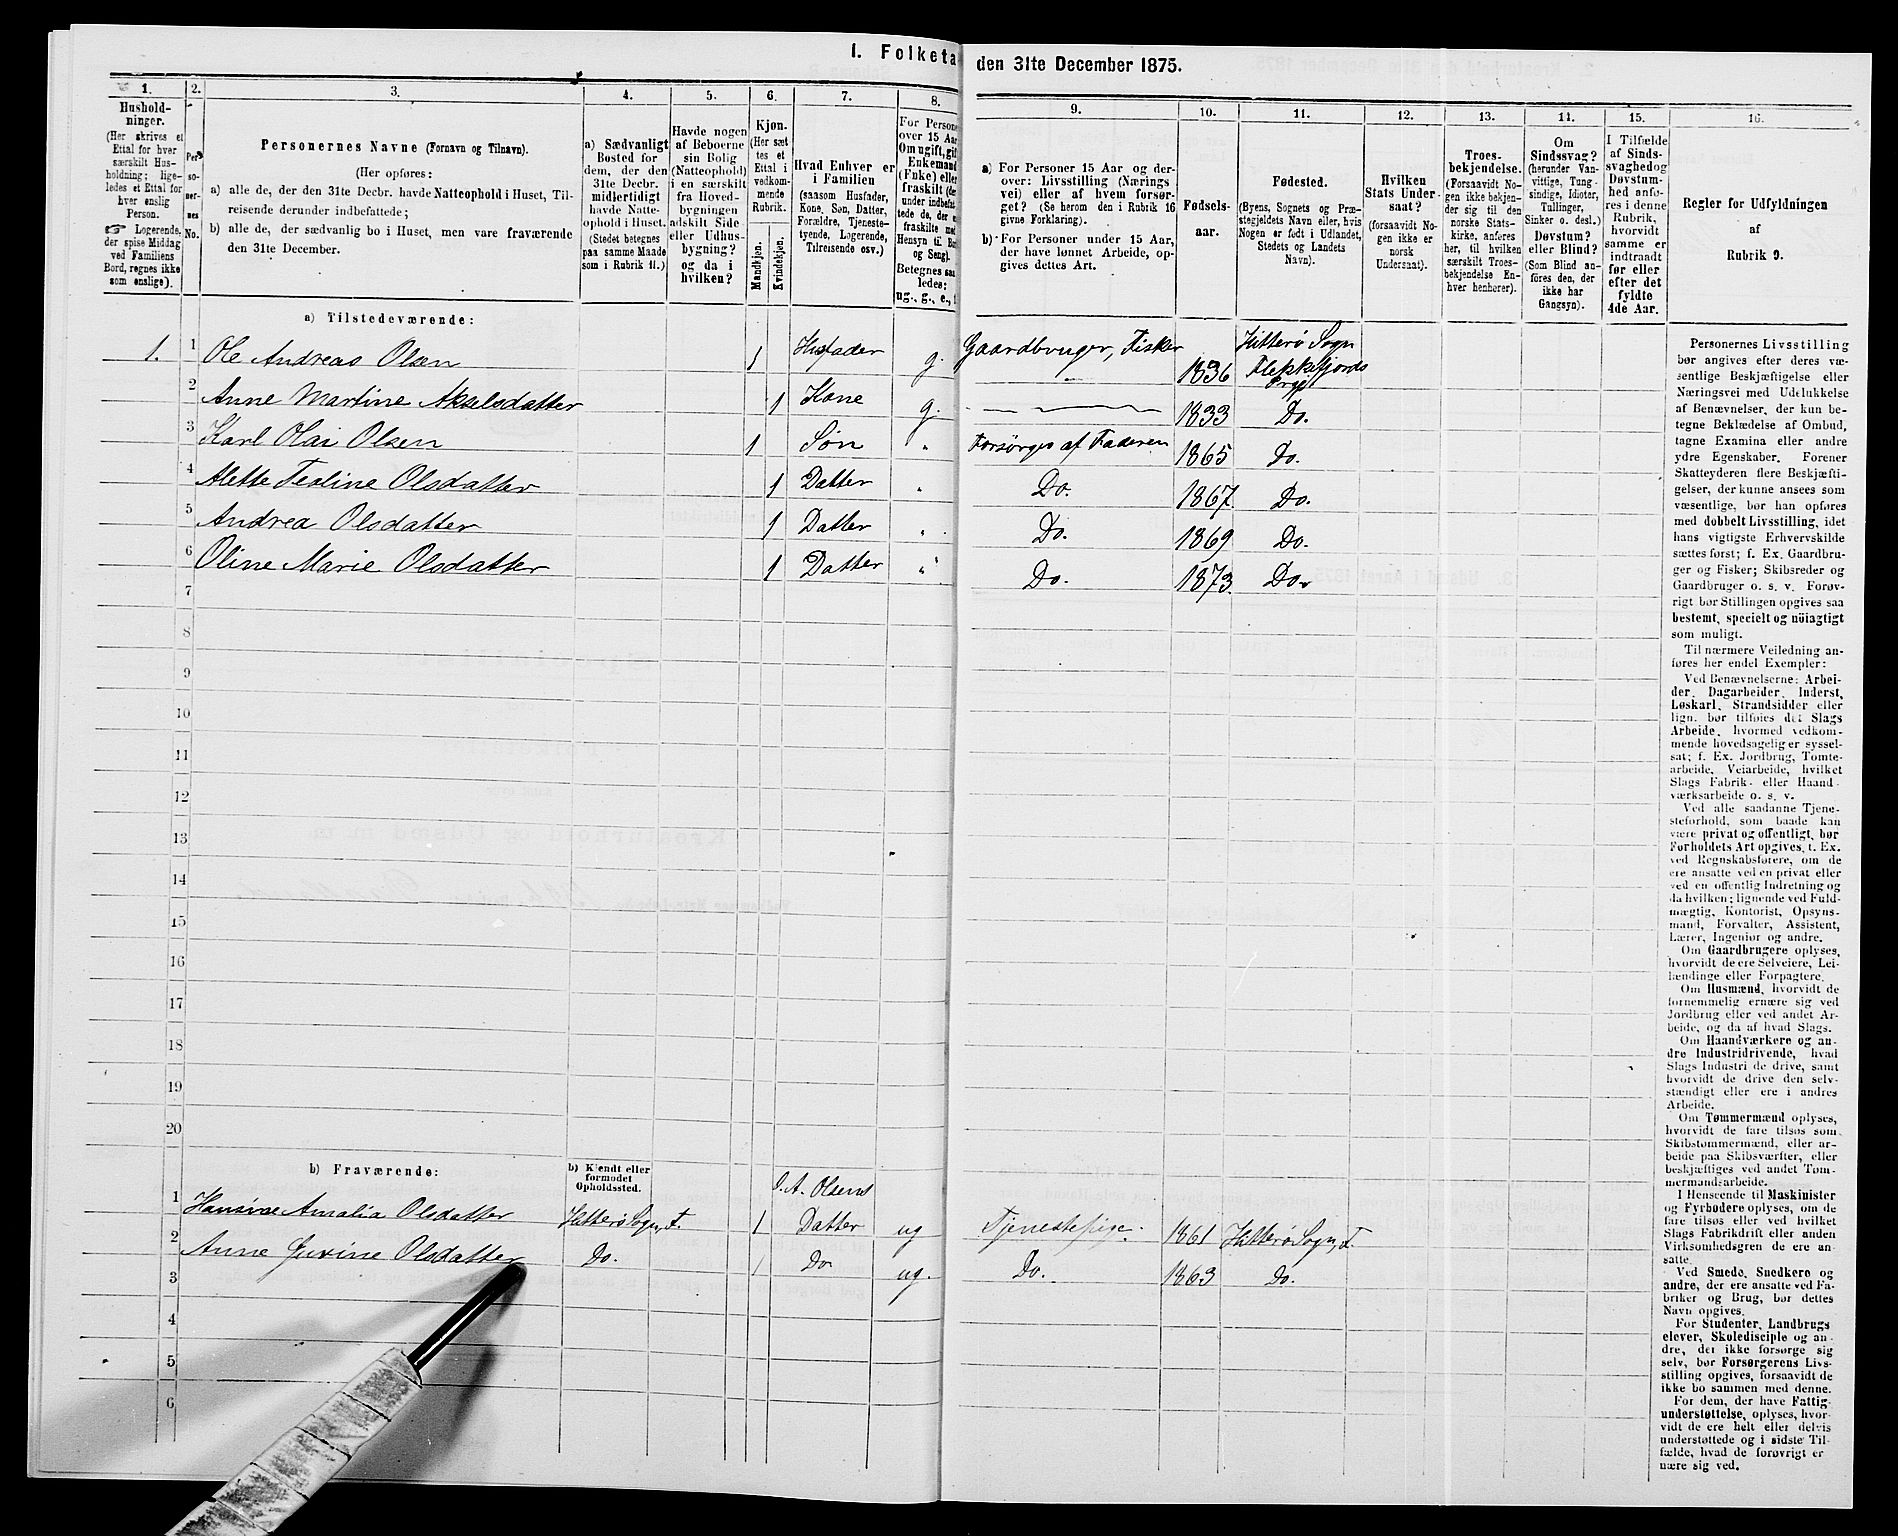 I. Folketa
den 31te December 1875.
1.
Hushold-
ninger.
(Her skrives et
Ettal for hver
særskilt Hus-
holdning; lige-
ledes et Ettal for
hver enslig
Person.
☞ Logerende,
der spise Middag
ved Familiens
Bord, regnes ikke
som enslige).
2.
Per-
so-
ner-
nes
No.
3.
Personernes Navne (Fornavn og Tilnavn).
(Her opføres:
a) alle de, der den 31te Decbr. havde Natteophold i Huset, Til-
reisende derunder indbefattede;
b) alle de, der sædvanlig bo i Huset, men vare fraværende
den 31te December.
4.
a) Sædvanligt
Bosted for
dem, der den
31te Decbr.
midlertidigt
havde Natte-
ophold i Huset.
(Stedet betegnes
paa samme Maade
som i Rubrik 11.)
5.
Havde nogen
af Beboerne
sin Bolig
(Natteophold)
i en særskilt
fra Hoved-
bygningen
adskilt Side-
eller Udhus-
bygning?
og da i
hvilken?
6.
Kjøn.
(Her sæt-
tes et
Ettal i
vedkom-
mende
Rubrik.
Mandkjøn.
Kvindekjøn.
7.
Hvad Enhver er
i Familien
(saasom Husfader,
Kone, Søn, Datter,
Forældre, Tjeneste-
tyende, Logerende,
Tilreisende osv.)
8.
For Persone
over 15 Aar
Om ugift, gift
Enkemand
(Enke) elle
fraskilt (der
under indbefat
tede de, der e
fraskilte med
Hensyn til Bo
og Seng).
Betegnes saa
ledes:
ug., g., e., f.
9.
a) For Personer 15 Aar og der-
over: Livsstilling (Nærings
vei) eller af hvem forsør-
get? (Se herom den i Rubrik 16
givne Forklaring).
b) For Personer under 15 Aar,
der have lønnet Arbeide, op-
gives dettes Art.
10.
Fødsels-
aar.
11.
Fødested.
(Byens, Sognets og Præ-
stegjeldets Navn eller, hvis
Nogen er født i Udlandet,
Stedets og Landets
Navn).
12.
Hvilken
Stats Under-
saat?
(forsaavidt No-
gen ikke er
norsk
Undersaat).
13.
Troes-
bekjendelse.
(Forsaavidt No-
gen ikke bekjen-
der sig til den
norske Stats-
kirke, anføres
her, til hvilken
særskilt Troes-
bekjendelse En-
hver henhører).
14.
Om
Sindssvag?
(herunder Van-
vittige, Tung-
sindige, Idioter,
Tullinger,
Sinker o. desl.)
Døvstum?
eller Blind?
(Som Blind an-
føres den, der
ikke har
Gangsyn).
15.
I Tilfælde
af Sinds-
svaghed og
Døvstum-
hed anfø-
res i denne
Rubrik,
hvorvidt
samme er
indtraadt
før eller
efter det
fyldte
4de Aar.
16.
Regler for Udfyldningen
af
Rubrik 9.
a) Tilstedeværende:
1. 1 Ole Andreas Olsen 1 Husfader g. Gaardbruger, Fisker 1836 Hitterø Sogn Flekkefjords Prgj
2 Anne Martine Akselsdatter 1 Kone g. 1833 Do.
3 Karl Olai Olsen 1 Søn " Forsørges af Faderen 1865 Do.
4 Alette Tealine Olsdatter 1 Datter " Do. 1867. Do.
5 Andrea Olsdatter 1 Datter " Do. 1869 Do.
6 Oline Marie Olsdatter 1 Datter " Do. 1873. Do.
7
8
9
10
11
12
13
14
15
16
17
18
19
20
b) Fraværende:
b) Kjendt eller
formodet
Opholdssted.
O. A. Olsens
1 Hansine Amalia Olsdatter Hitterø Sogn, F. 1 Datter ug Tjenestepige. 1861 Hitterø Sogn, F.
2 Anne Gurine Olsdatter Do. 1 Do ug. Do. 1863 Do.
3
4
5
6
Personernes Livsstilling
bør angives efter deres væ-
sentlige Beskjæftigelse eller
Næringsvei med Udelukkelse
af Benævnelser, der kun be-
tegne Beklædelse af Ombud,
tagne Examina eller andre
ydre Egenskaber. Forener
Skatteyderen flere Beskjæfti-
gelser, der kunne ansees som
væsentlige, bør han opføres
med dobbelt Livsstilling, idet
hans vigtigste Erhvervskilde
sættes først; f. Ex. Gaardbru-
ger og Fisker; Skibsreder og
Gaardbruger o. s. v. Forøv-
rigt bør Stillingen opgives saa
bestemt, specielt og nöiagtigt
som muligt.
Til nærmere Veiledning an-
føres her endel Exempler:
Ved Benævnelserne: Arbei-
der, Dagarbeider, Inderst,
Løskarl, Strandsidder eller
lign. bør tilføies det Slags
Arbeide, hvormed vedkom-
mende hovedsagelig er syssel-
sat; f. Ex. Jordbrug, Tomte-
arbeide, Veiarbeide, hvilket
Slags Fabrik- eller Haand-
værksarbeide o. s. v.
Ved alle saadanne Tjene-
steforhold, som baade kan
være privat og offentligt, bør
Forholdets Art opgives, f. Ex.
ved Regnskabsførere, om de
ere ansatte ved en privat eller
ved en offentlig Indretning og
da hvilken; lignende ved Fuld-
mægtig, Kontorist, Opsyns-
mand, Forvalter, Assistent,
Lærer, Ingeniør og andre.
Om Gaardbrugere oplyses,
hvorvidt de ere Selveiere, Lei-
lændinge eller Forpagtere.
Om Husmænd, hvorvidt de
fornemmelig ernære sig ved
Jordbrug eller ved andet Ar-
beide, og da af hvad Slags.
Om Haandværkere og an-
dre Industridrivende, hvad
Slags Industri de drive, samt
hvorvidt de drive den selv-
stændigt eller ere i andres
Arbeide.
Om Tømmermænd oplyses,
hvorvidt de fare tilsøs som
Skibstømmermænd, eller ar-
beide paa Skibsværfter, eller
beskjæftiges ved andet Tøm-
mermandsarbeide.
I Henseende til Maskinister
og Fyrbødere oplyses, om de
fare tilsøs eller ved hvilket
Slags Fabrikdrift eller anden
Virksomhedsgren de ere an-
satte.
Ved Smede, Snedkere og
andre, der ere ansatte ved Fa-
briker og Brug, bør dettes
Navn opgives.
For Studenter, Landbrugs-
elever, Skoledisciple og an-
dre, der ikke forsørge sig
selv, bør Forsørgerens Livs-
stilling opgives, forsaavidt de
ikke bo sammen med denne.
For dem, der have Fattig-
understøttelse, oplyses, hvor-
vidt de ere helt eller delvis
understøttede og i sidste Til-
fælde, hvad de forøvrigt er-
nære sig ved.